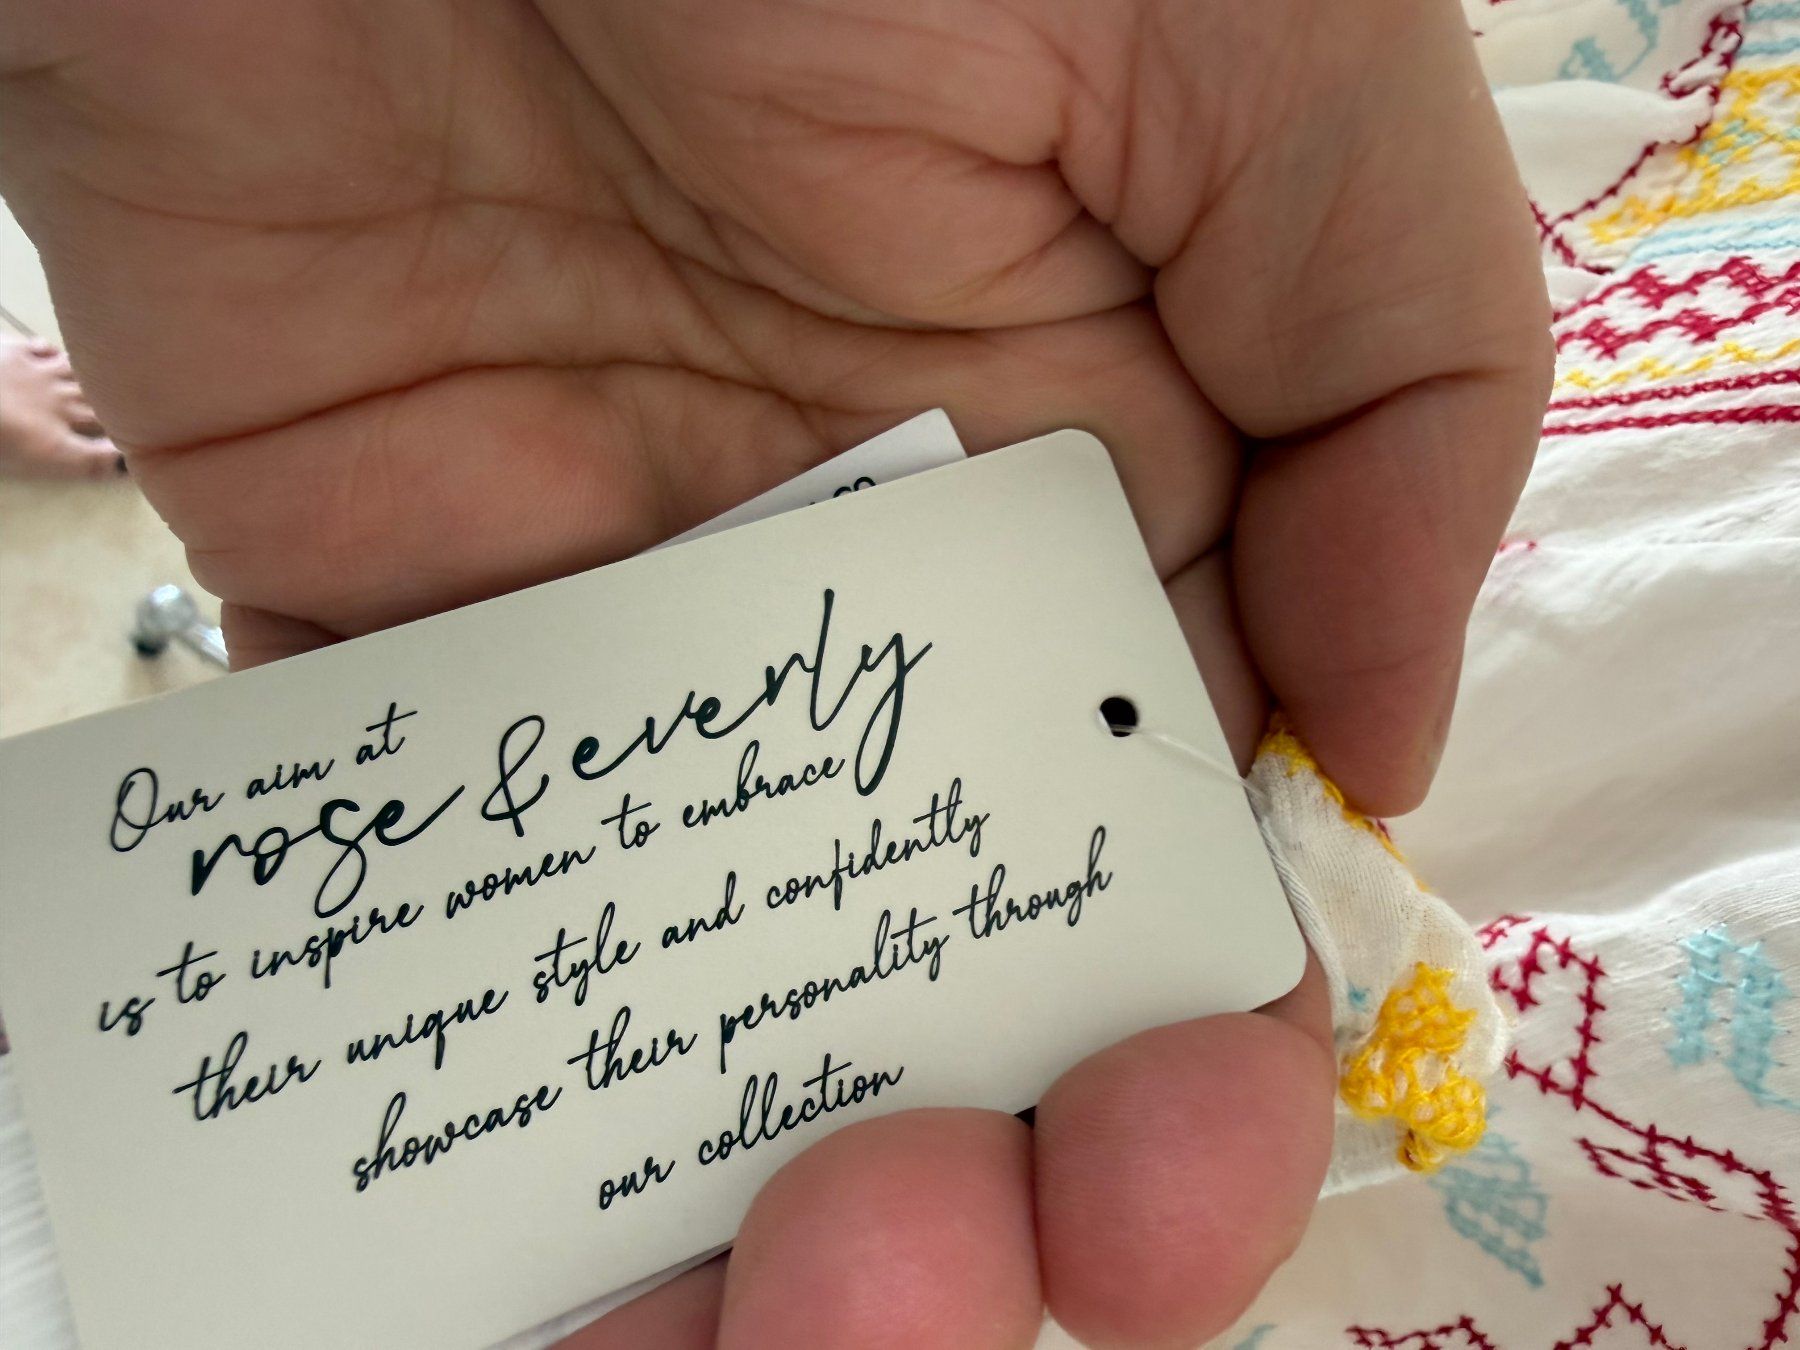 Our aim at
rose & everly
is to inspire women to embrace
their unique style and confidently
showcase their personality through
our collection